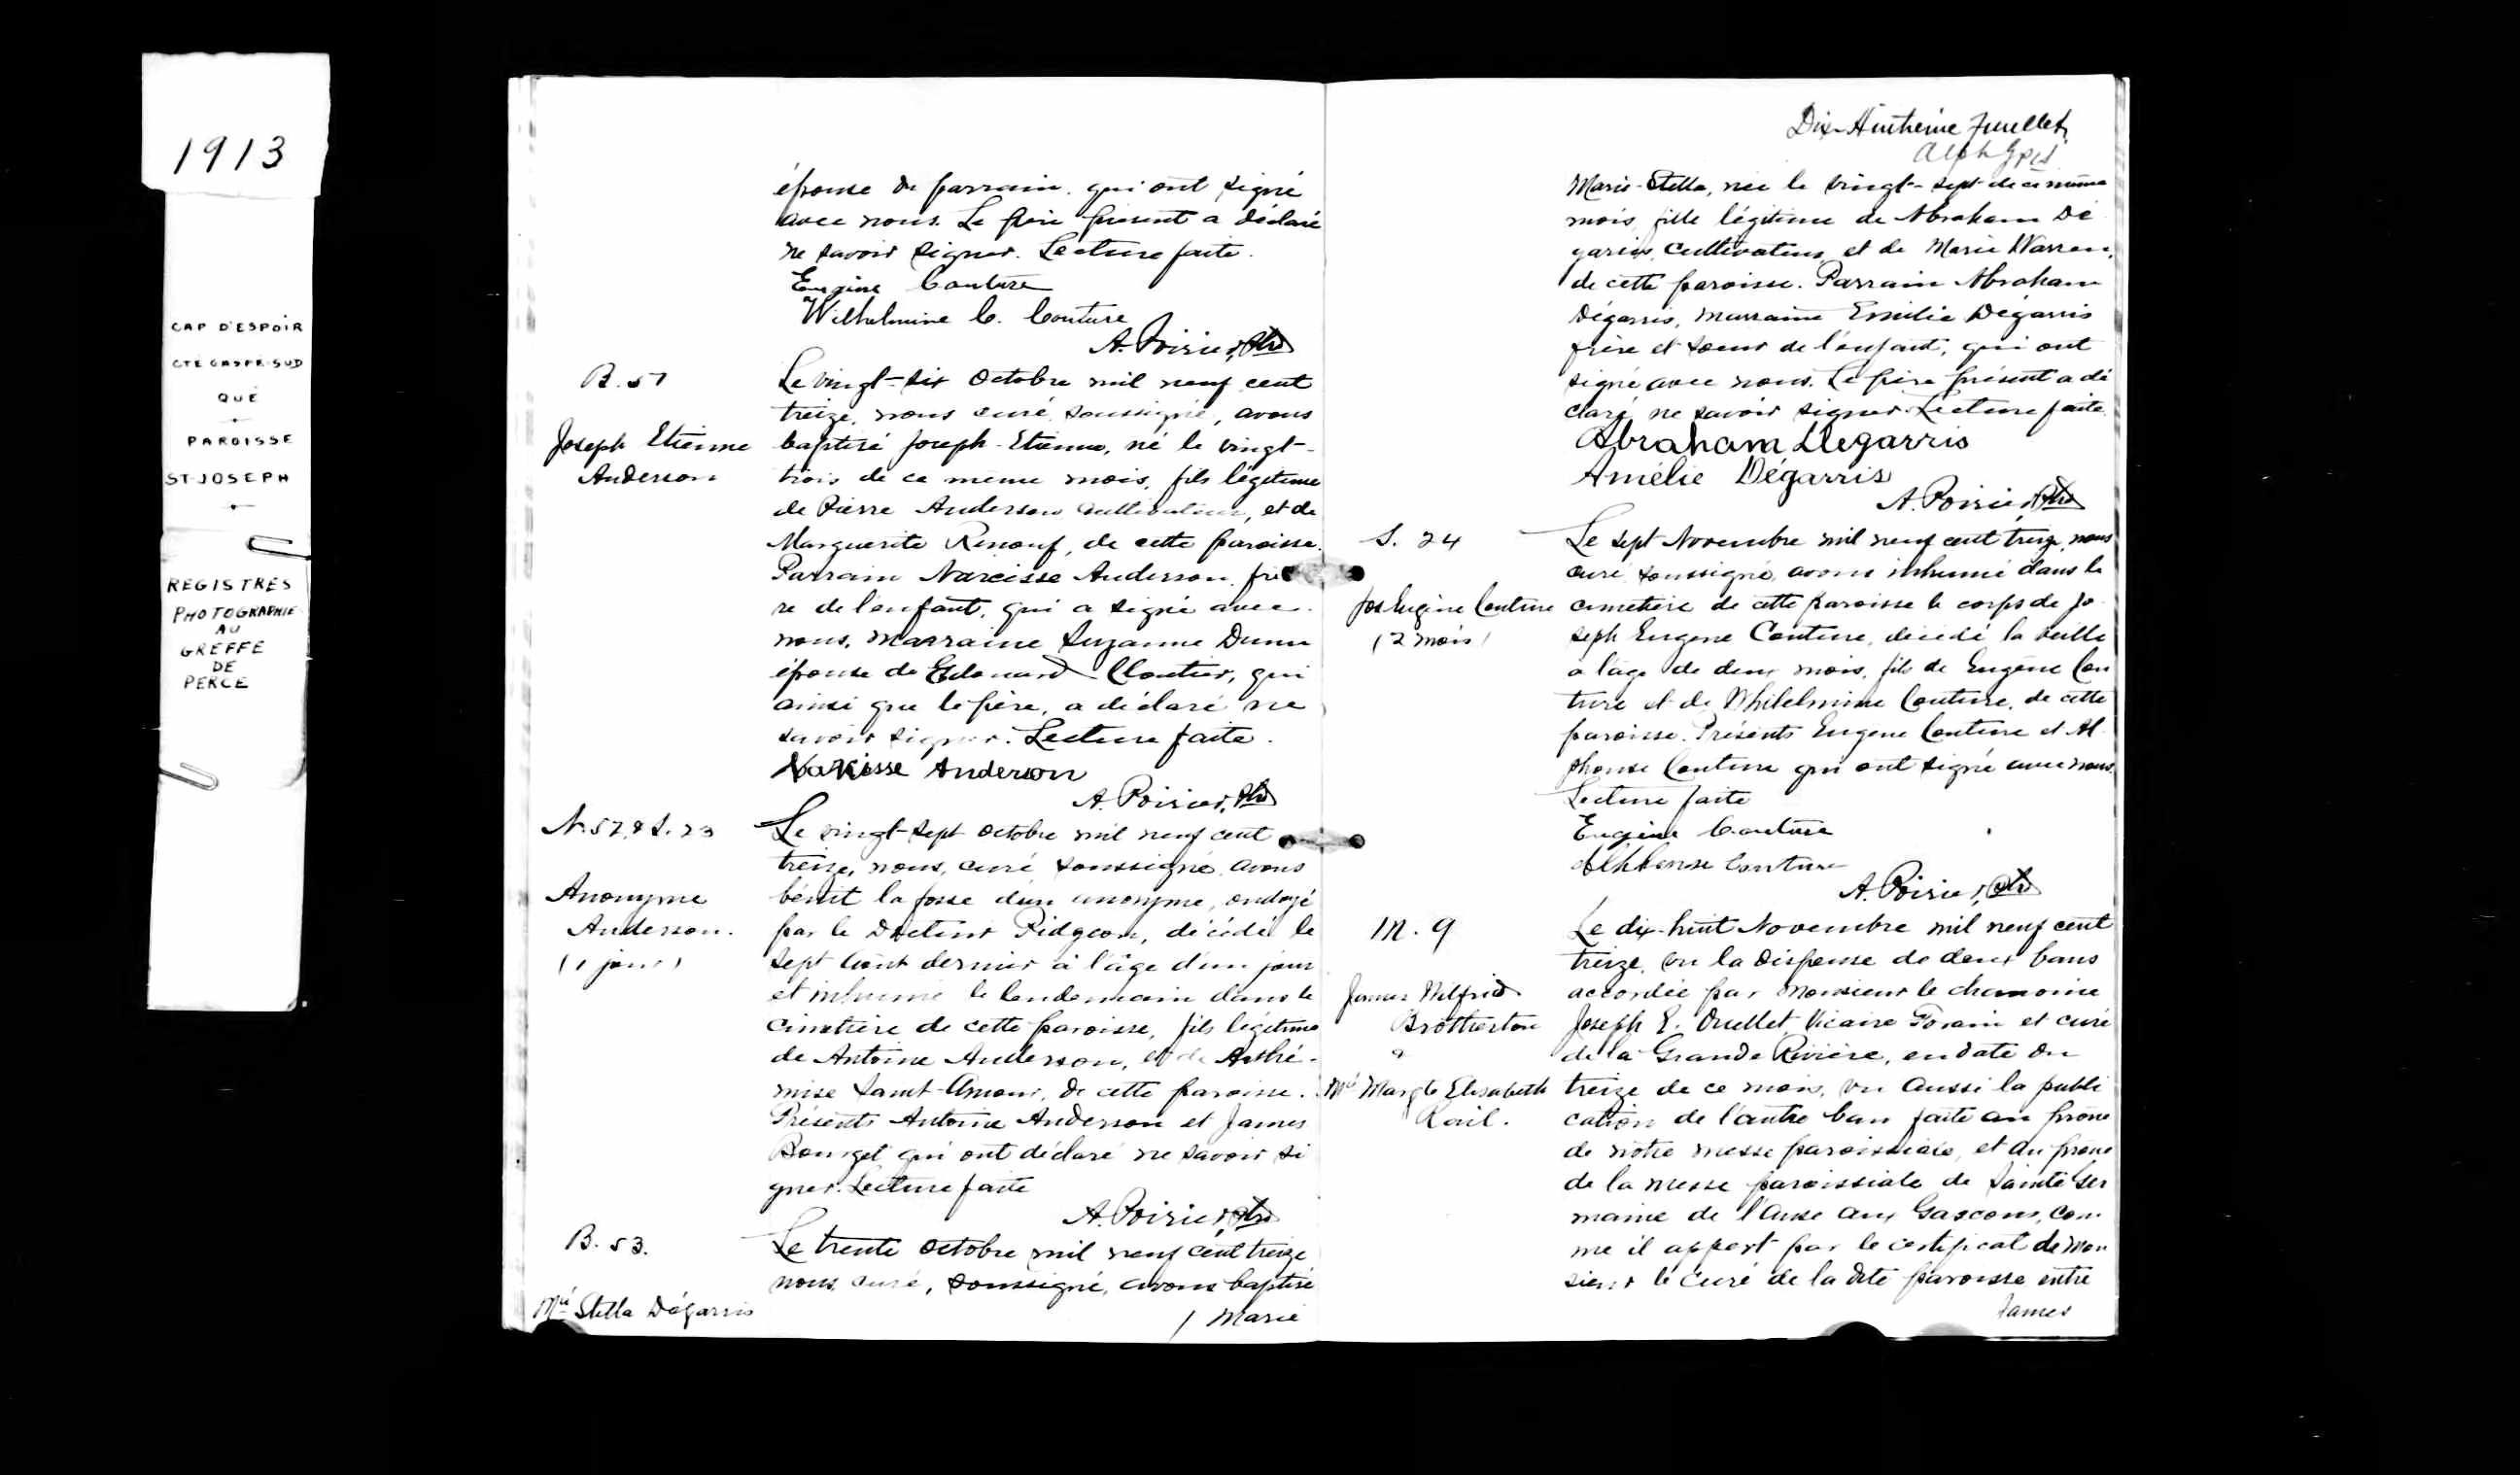 1913
CAP D'ESPOIR
CTÉ GASPÉ-SUD
QUÉ
PAROISSE
ST-JOSEPH
REGISTRES
PHOTOGRAPHIE
AU
GREFFE
DE
PERCE
épouse du parrain qui ont signé
avec nous. Le père présent a déclaré
ne savoir signer. Lecture faite.
Eugène Couture
Wilhelmine C. Couture
A. Poirier, Ptre
B. 51
Joseph Etienne
Anderson
Le vingt-six Octobre mil neuf cent
treize, nous curé soussigné, avons
baptisé Joseph-Etienne, né le vingt-
trois de ce même mois, fils légitime
de Pierre Anderson cultivateur, et de
Marguerite Renouf, de cette paroisse.
Parrain Narcisse Anderson, frè
re de l'enfant, qui a signé avec
nous, marraine Suzanne Dunn
épouse de Edouard Cloutier, qui
ainsi que le père, a déclaré ne
savoir signer. Lecture faite.
Narcisse Anderson
A. Poirier, Ptre
N. 52, & S. 23
Anonyme
Anderson.
(1 jour)
Le vingt-sept Octobre mil neuf cent
treize, nous, curé soussigné avons
bénit la fosse d'un anonyme, ondoyé
par le Docteur Pidgeon, décédé le
sept Août dernier à l'âge d'un jour
et inhumé le lendemain dans le
cimetière de cette paroisse, fils légitime
de Antoine Anderson, et de Arthé-
mise Saint-Amour, de cette paroisse.
Présents Antoine Anderson et James
Bourget qui ont déclaré ne savoir si
gner. Lecture faite
A. Poirier, Ptre
B. 53.
Mie Stella Dégarris
Le trente Octobre mil neuf cent treize
nous, curé, soussigné, avons baptisé
/ Marie
Dix-Huitième Feuillet
Marie-Stella, née le vingt-sept de ce même
mois, fille légitime de Abraham Dé
garris, cultivateur, et de Marie Warren,
de cette paroisse. Parrain Abraham
Dégarris, marraine Emilie Dégarris
frère et soeur de l'enfant, qui ont
signé avec nous. Le père présent a dé
claré ne savoir signer. Lecture faite.
Abraham Degarris
Amélie Dégarris
A. Poirier, Ptre
S. 24
Jos Eugène Couture
(2 mois)
Le sept Novembre mil neuf cent treize, nous
curé soussigné, avons inhumé dans le
cimetière de cette paroisse le corps de Jo
seph Eugène Couture, décédé la veille
a l'âge de deux mois, fils de Eugène Cou
ture et de Whilelmine Couture, de cette
paroisse. Présents Eugène Couture et Al
phonse Couture qui ont signé avec nous.
Lecture faite
Eugène Couture
Alphonse Couture
A. Poirier, Ptre
M. 9
James Wilfrid
Brotherton
&
Mie Margte Elisabeth
Rail.
Le dix-huit Novembre mil neuf cent
treize, vu la dispense de deux bans
accordée par Monsieur le chanoine
Joseph E. Ouellet, Vicaire Forain et curé
de la Grande Rivière, en date du
treize de ce mois, vu aussi la publi
cation de l'autre ban faite au prône
de notre messe paroissiale, et au prône
de la messe paroissiale de Sainte Ger
maine de l'Anse aux Gascons, com
me il appert par le certificat de Mon
sieur le Curé de la dite paroisse entre
James